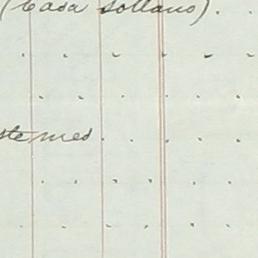 (Casa Sollano) . .
ste mes . . . .